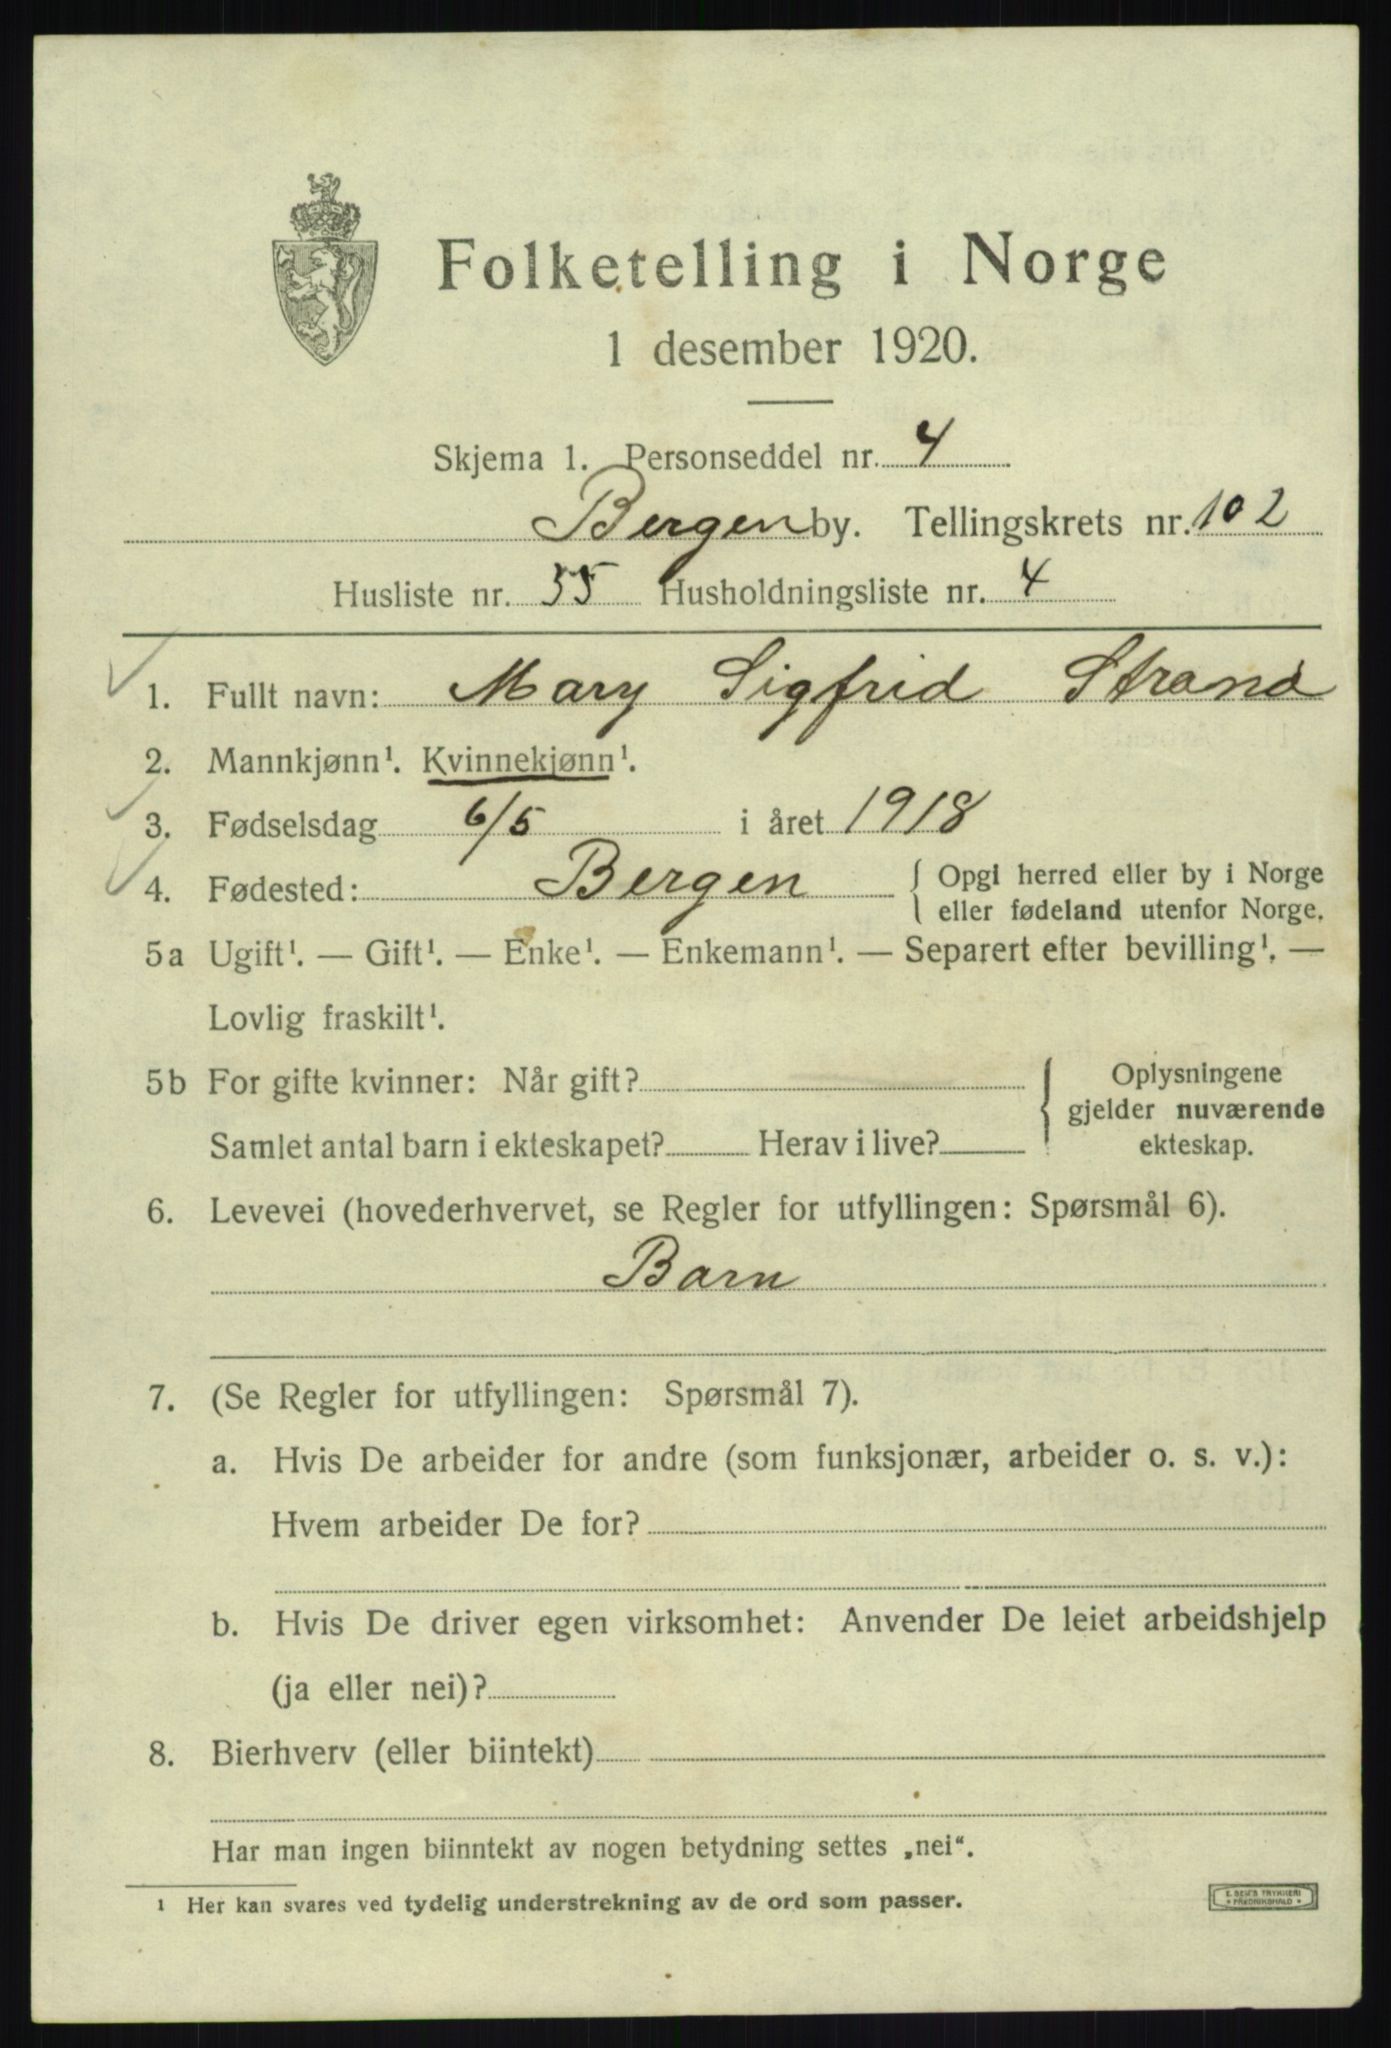 Folketelling i Norge
1 desember 1920.
Skjema 1. Personseddel nr. 4
Bergen by. Tellingskrets nr. 102
Husliste nr. 35 Husholdningsliste nr. 4
1. Fullt navn: Mary Sigfrid Strand
2. Mannkjønn¹. Kvinnekjønn¹.
3. Fødselsdag 6/5 i året 1918
4. Fødested: Bergen { Opgi herred eller by i Norge
eller fødeland utenfor Norge.
5a Ugift¹. — Gift¹. — Enke¹. — Enkemann¹. — Separert efter bevilling¹. —
Lovlig fraskilt¹.
5b For gifte kvinner: Når gift? { Oplysningene
gjelder nuværende
Samlet antal barn i ekteskapet? Herav i live? ekteskap.
6. Levevei (hovederhvervet, se Regler for utfyllingen: Spørsmål 6).
Barn
7. (Se Regler for utfyllingen: Spørsmål 7).
a. Hvis De arbeider for andre (som funksjonær, arbeider o. s. v.):
Hvem arbeider De for?
b. Hvis De driver egen virksomhet: Anvender De leiet arbeidshjelp
(ja eller nei)?
8. Bierhverv (eller biintekt)
Har man ingen biinntekt av nogen betydning settes „nei“.
¹ Her kan svares ved tydelig understrekning av de ord som passer.
E. SEM'S TRYKKERI
• FREDRIKSHALD •